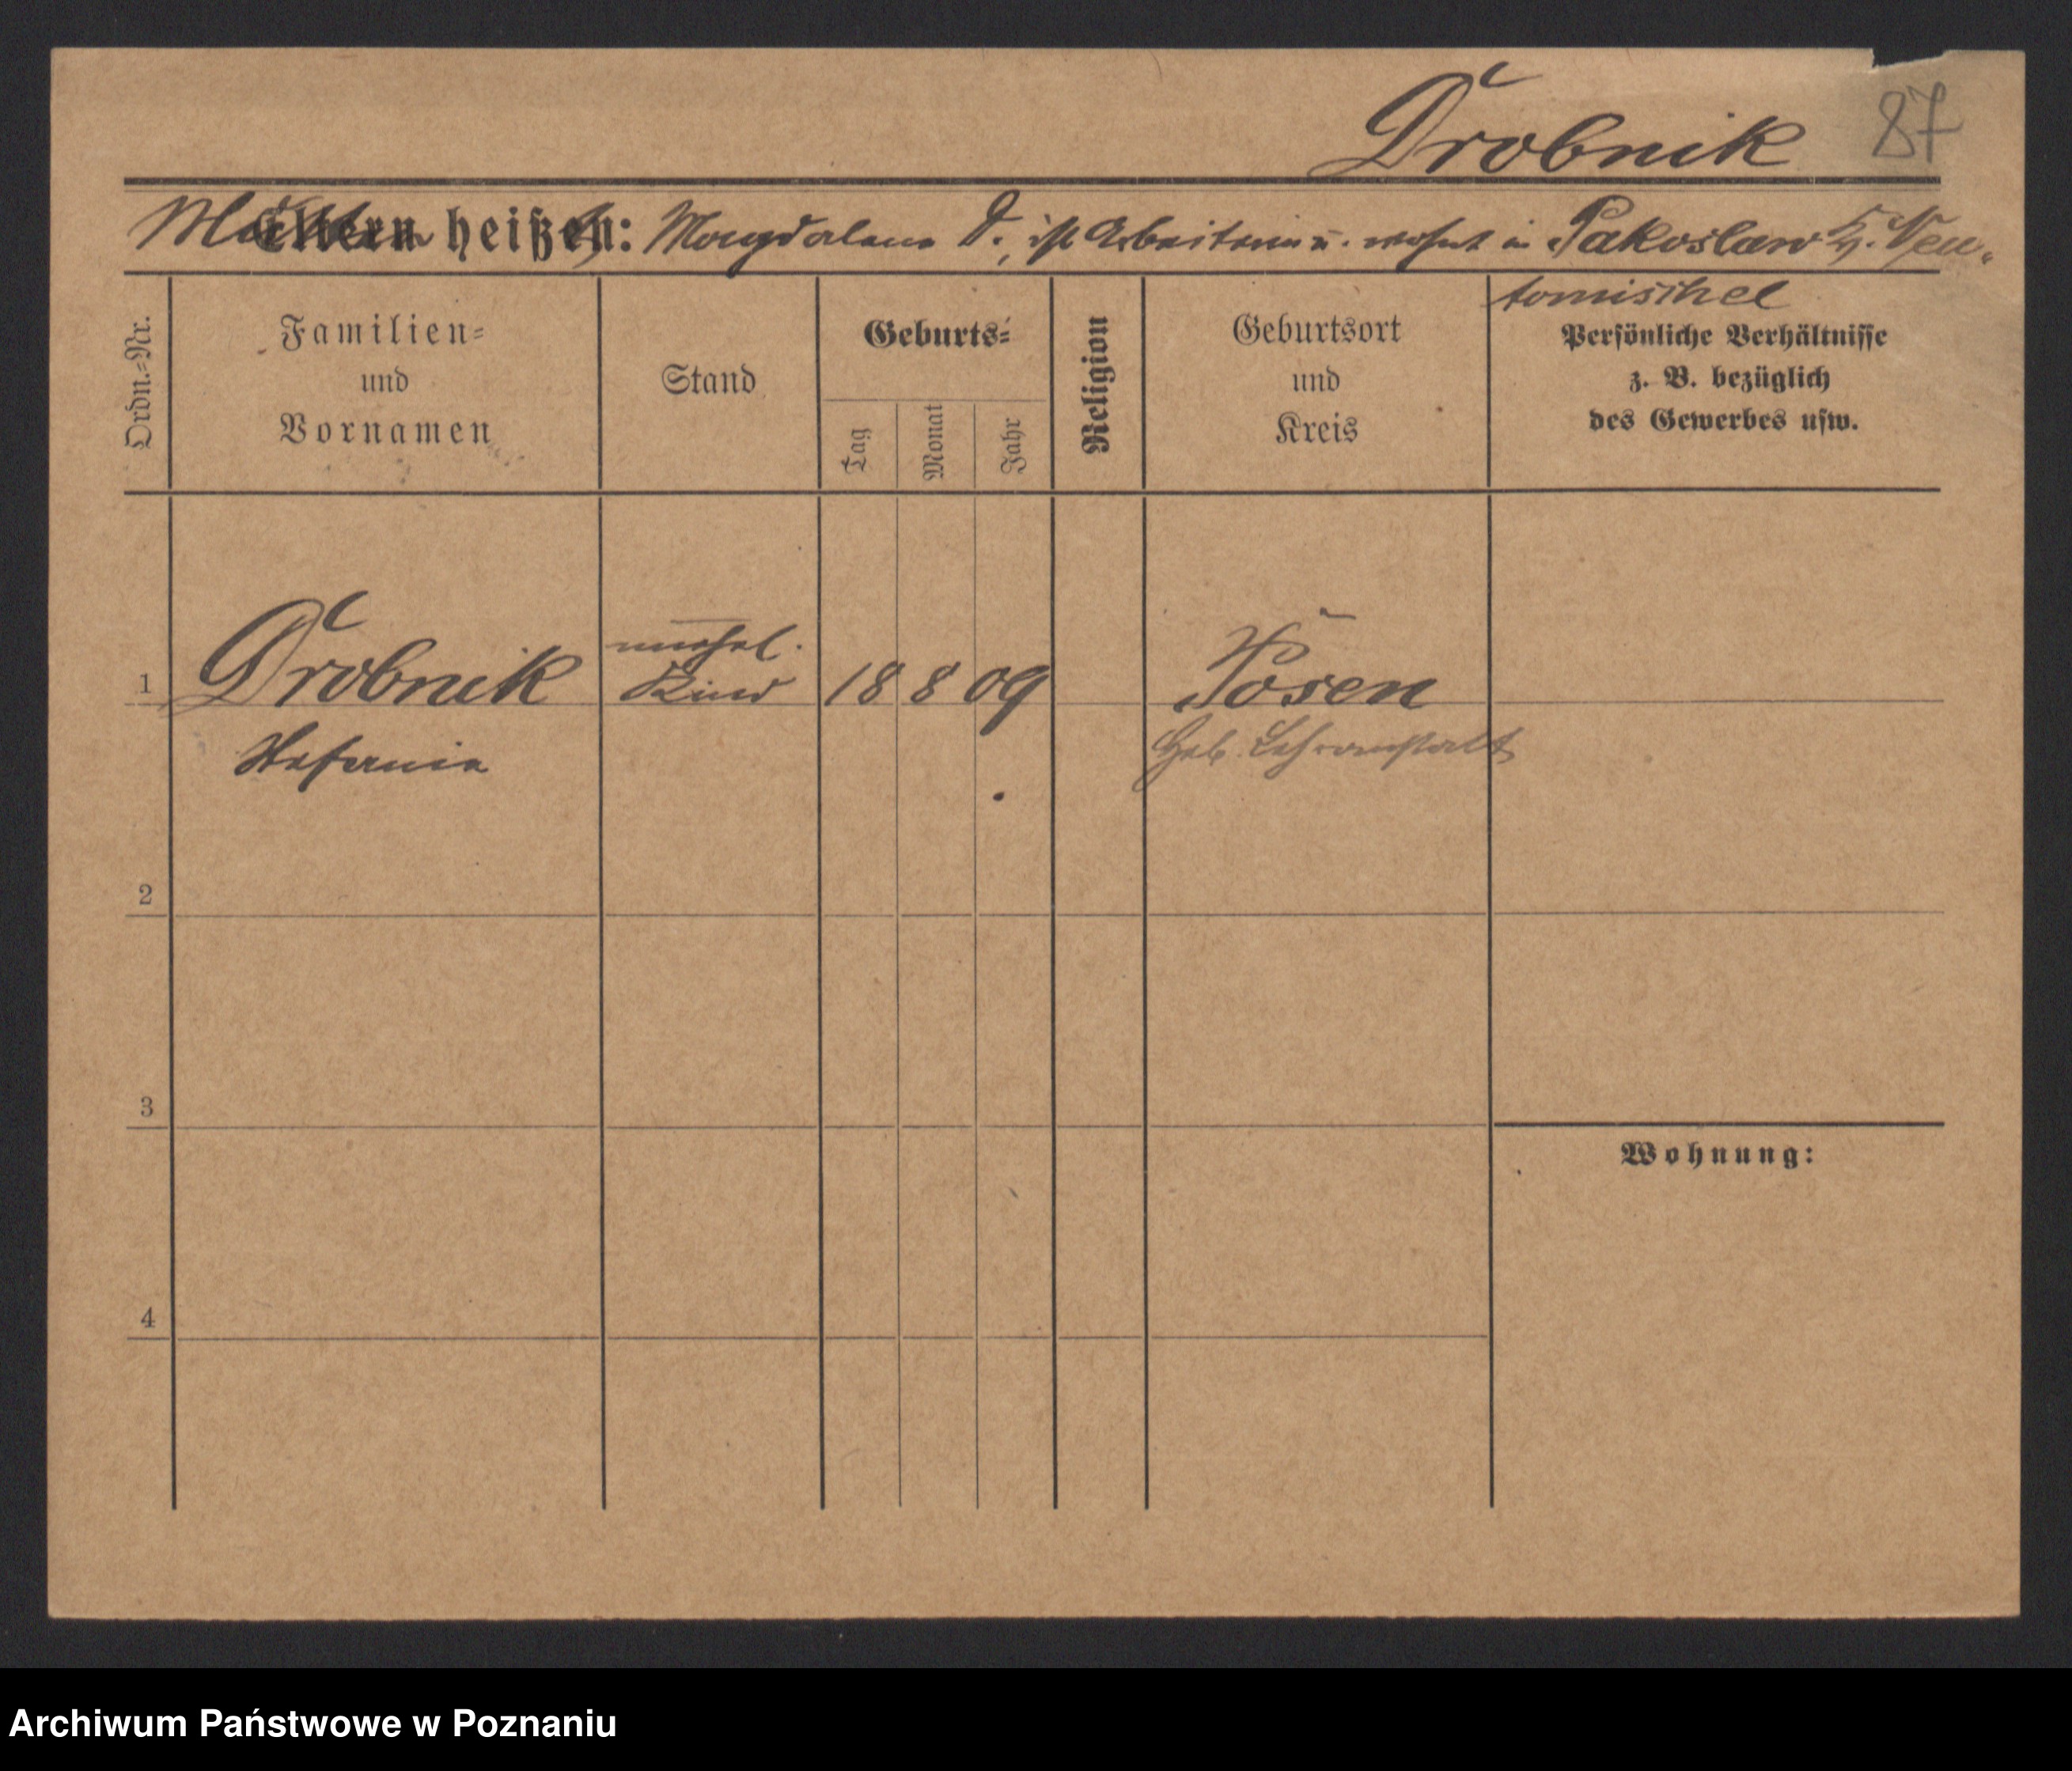 Drobnik 87
Mutter heißt: Magdalena D., ist Arbeiterin u. wohnt in Pakoslaw Kr. Neu-
tomischel
Ordn.-Nr.
Familien-
und
Vornamen
Stand
Geburts-
Tag
Monat
Jahr
Religion
Geburtsort
und
Kreis
Persönliche Verhältnisse
z. B. bezüglich
des Gewerbes usw.
1 Drobnik unehel. Kind 18 8 09 Posen
Stefania Heb. Lehranstalt
2
3
Wohnung:
4
Archiwum Państwowe w Poznaniu